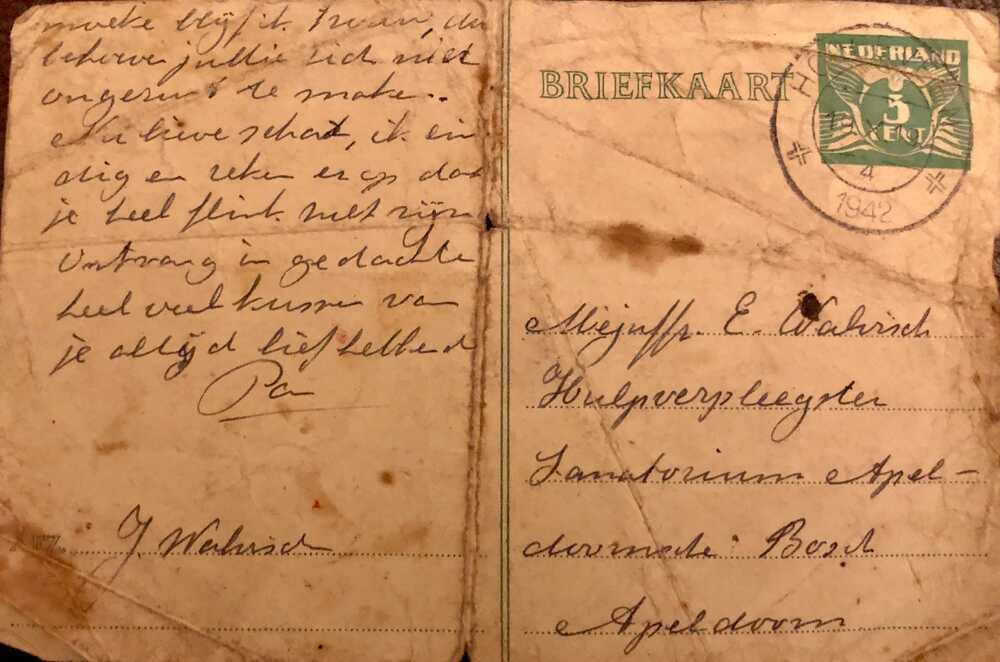 moeke blijft. Kwam, du
behoeve jullie sich niet
ongerust te make..
Nu lieve schat, ik ein
dig en reken er op dat
je heel flink zult zijn
Ontvang in gedachte
heel veel kussen van
je altijd liefhebbend
Pa
J. Walvisch
BRIEFKAART
NEDERLAND
3
CENT
4
1942
Mejuffr. E. Walvisch
Hulpverpleegster
Sanatorium Apel-
doornsche Bosch
Apeldoorn